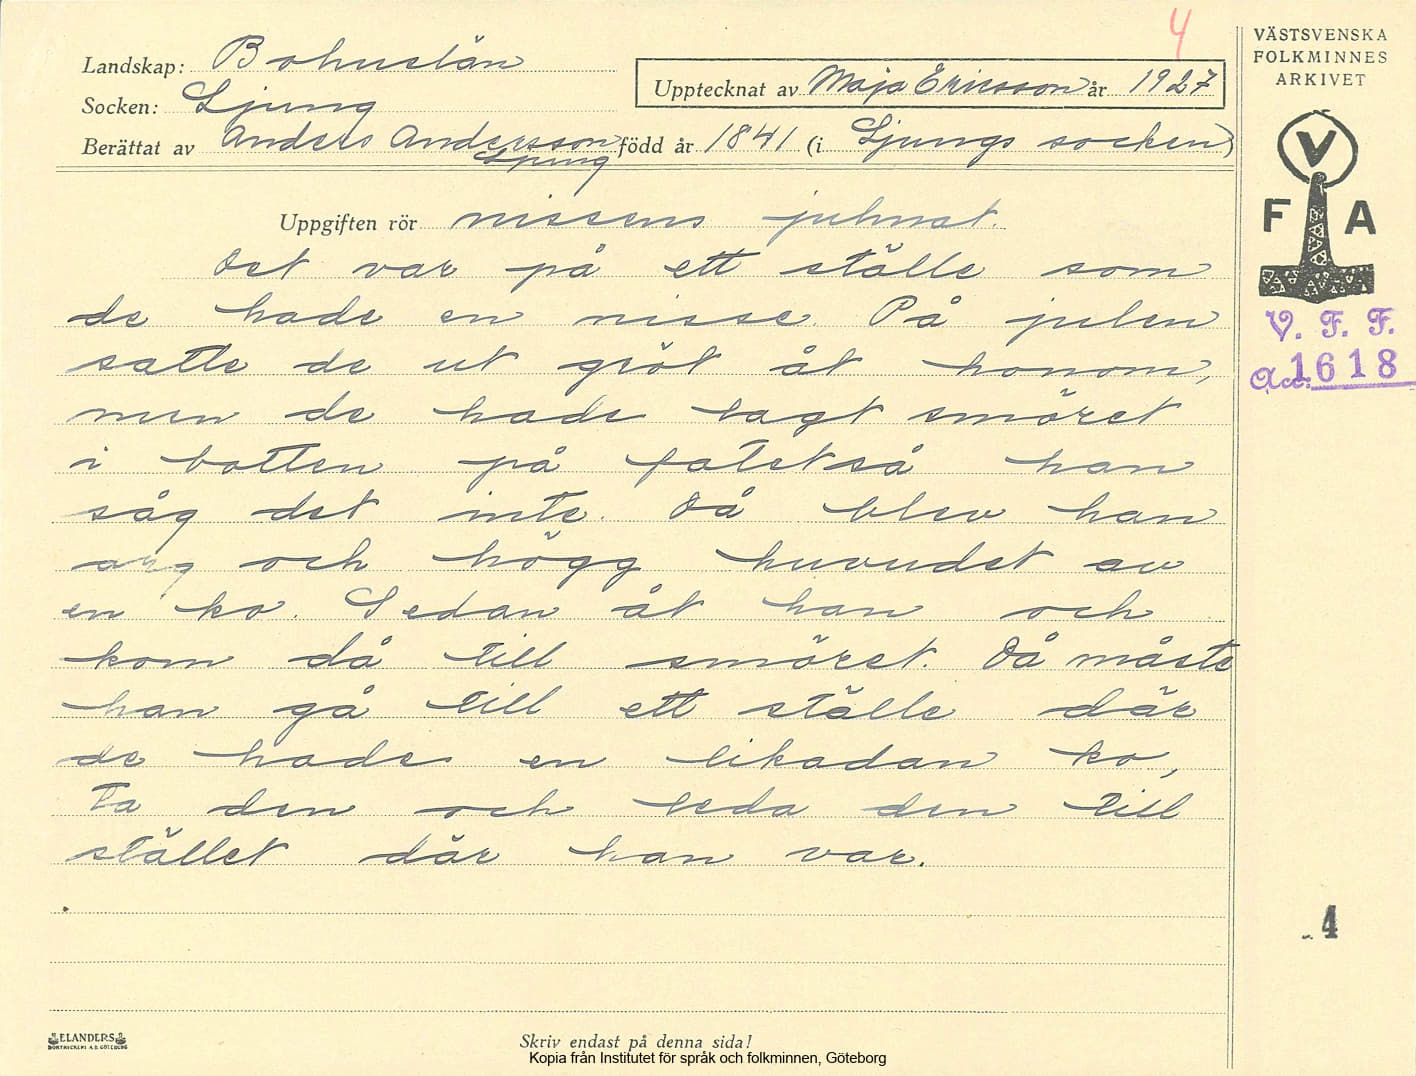 4
VÄSTSVENSKA
FOLKMINNES
ARKIVET
Landskap: Bohuslän
Upptecknat av Maja Ericsson år 1927
Socken: Ljung
Berättat av Anders Andersson född år 1841 (i Ljungs socken)
Ljung
V
F A
Uppgiften rör nissens julmat.
Det var på ett ställe som
de hade en nisse. På julen
satte de ut gröt åt honom,
men de hade lagt smöret
i botten på fatet så han
såg det inte. Då blev han
arg och högg huvudet av
en ko. Sedan åt han och
kom då till smöret. Då måste
han gå till ett ställe där
de hade en likadan ko,
ta den och leda den till
stället där han var.
V. F. F.
Acc. 1618
4
ELANDERS
BOKTRYCKERI A.B. GÖTEBORG
Skriv endast på denna sida!
Kopia från Institutet för språk och folkminnen, Göteborg